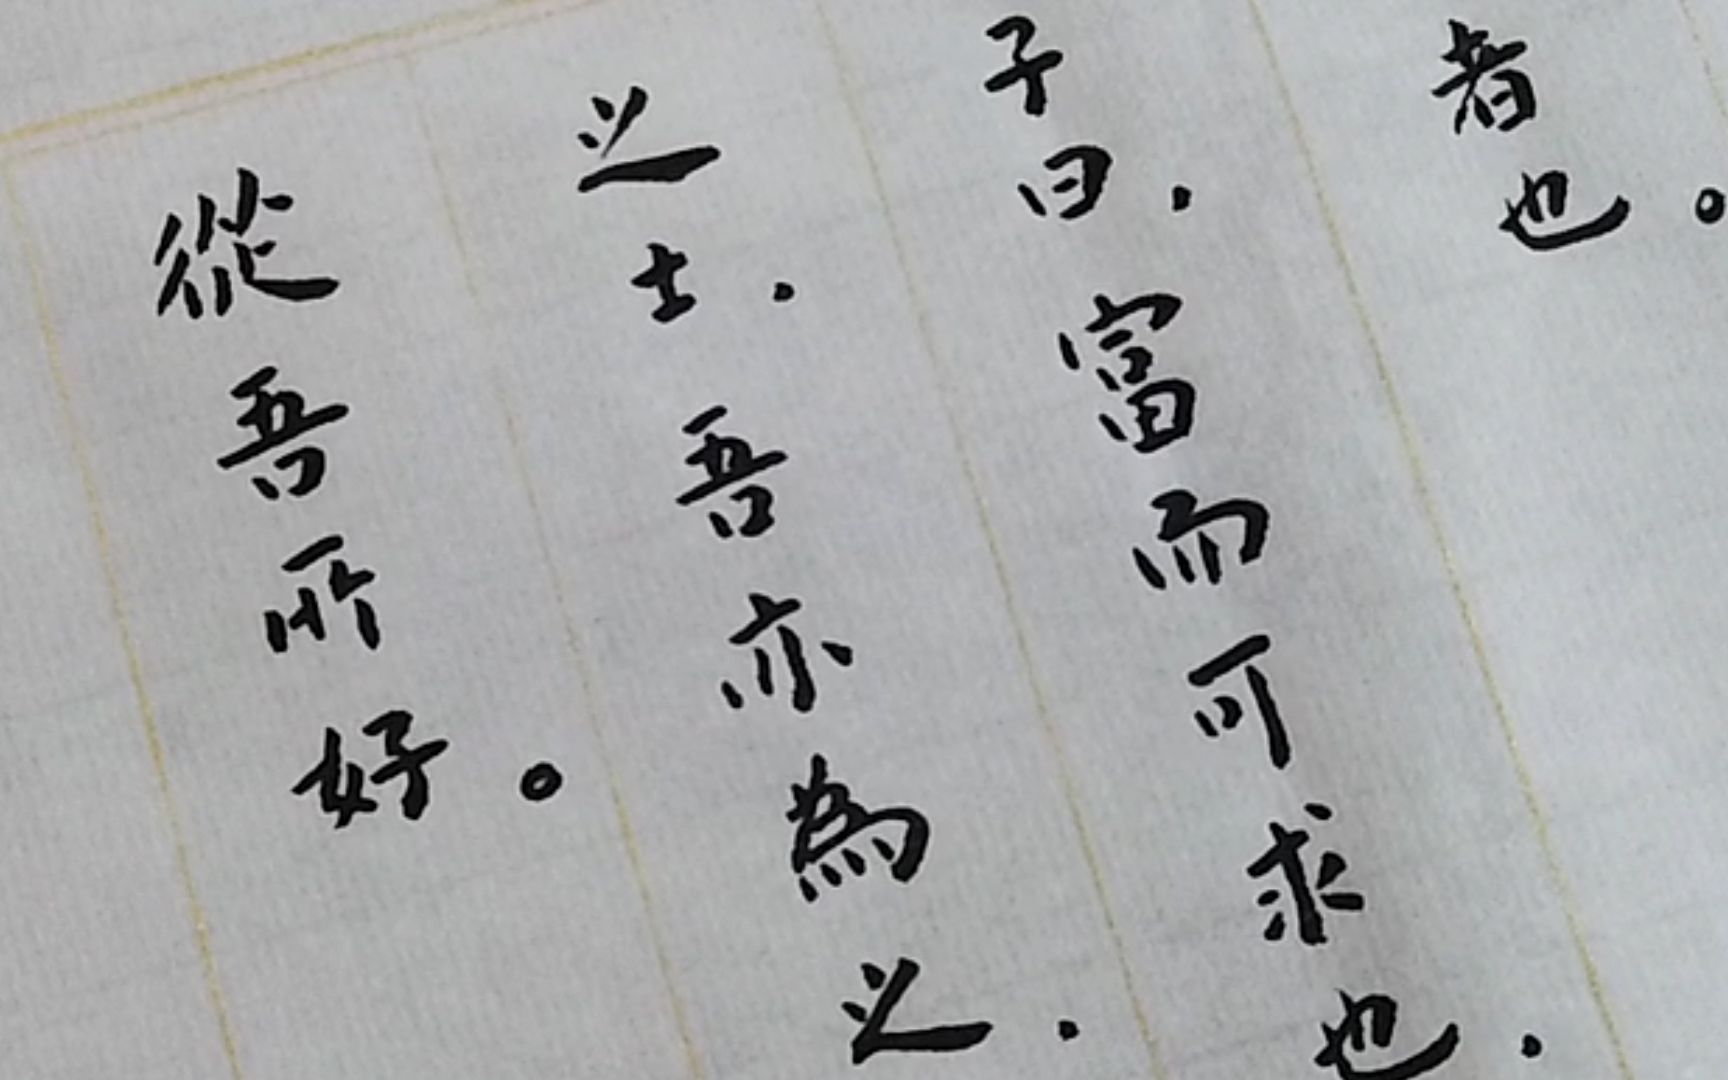 者也。
子曰，富而可求也，
之士，吾亦為之，
從吾所好。